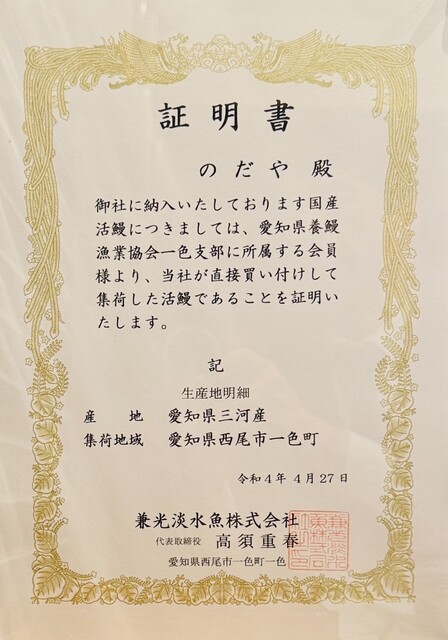 証明書
のだや 殿
御社に納入いたしております国産
活鰻につきましては、愛知県養鰻
漁業協会一色支部に所属する会員
様より、当社が直接買い付けして
集荷した活鰻であることを証明い
たします。
記
生産地明細
産 地 愛知県三河産
集荷地域 愛知県西尾市一色町
令和4年 4月27日
兼光淡水魚株式会社
代表取締役 高須重春
愛知県西尾市一色町一色